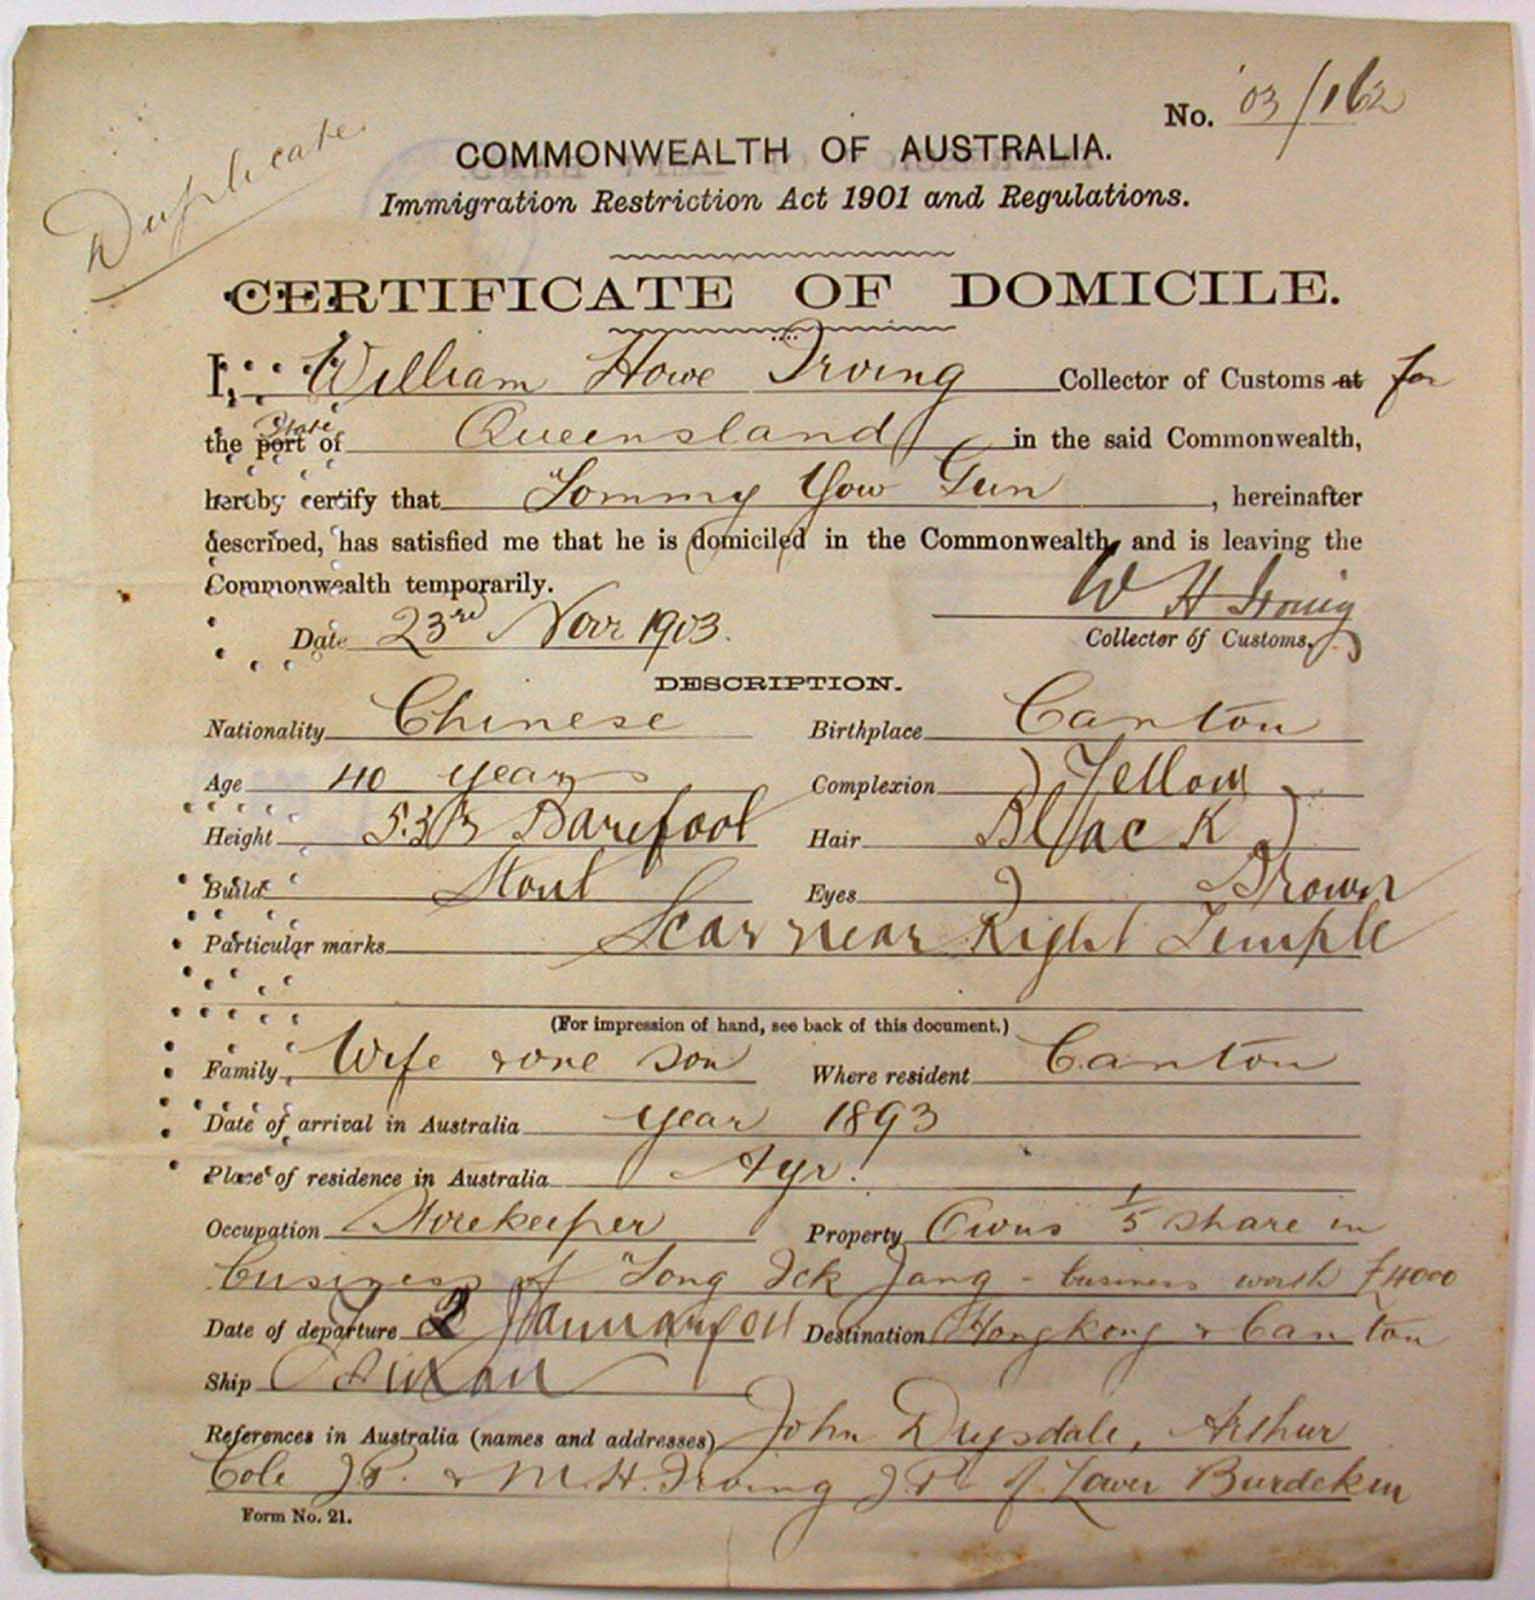 No. '03/162
Duplicate
COMMONWEALTH OF AUSTRALIA.
Immigration Restriction Act 1901 and Regulations.
CERTIFICATE OF DOMICILE.
I, William Howe Irving Collector of Customs at for
State
the port of Queensland in the said Commonwealth,
hereby certify that Tommy Yow Gun, hereinafter
described, has satisfied me that he is domiciled in the Commonwealth, and is leaving the
Commonwealth temporarily.
W H Irving
Date 23rd Novr 1903.
Collector of Customs.
DESCRIPTION.
Nationality Chinese Birthplace Canton
Age 40 years Complexion Yellow
Height 5.3 Barefoot Hair Black
Build Stout Eyes Brown
Particular marks Scar near Right Temple
(For impression of hand, see back of this document.)
Family Wife & one son Where resident Canton
Date of arrival in Australia year 1893
Place of residence in Australia Ayr.
Occupation Storekeeper Property Owns 1/5 share in
business of Jang - business worth £4000
Date of departure 2 January 04 Destination Hongkong & Canton
Ship
References in Australia (names and addresses) John Drysdale, Arthur
Cole J.P. & M.H. Irving J.P. of Lower Burdekin
Form No. 21.